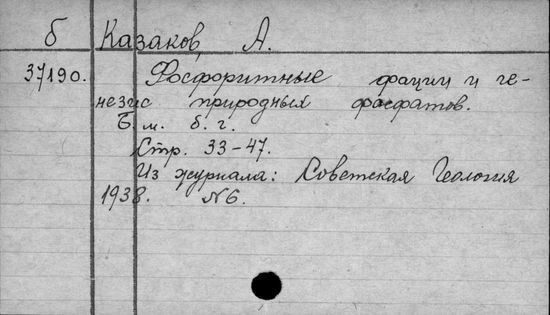 б Казаков, А.
37190. Фосфоритные фации и ге-
незис природных фосфатов.
Б. м. б. г.
Стр. 33-47.
Из журнала: Советская Геология
1938. №6.